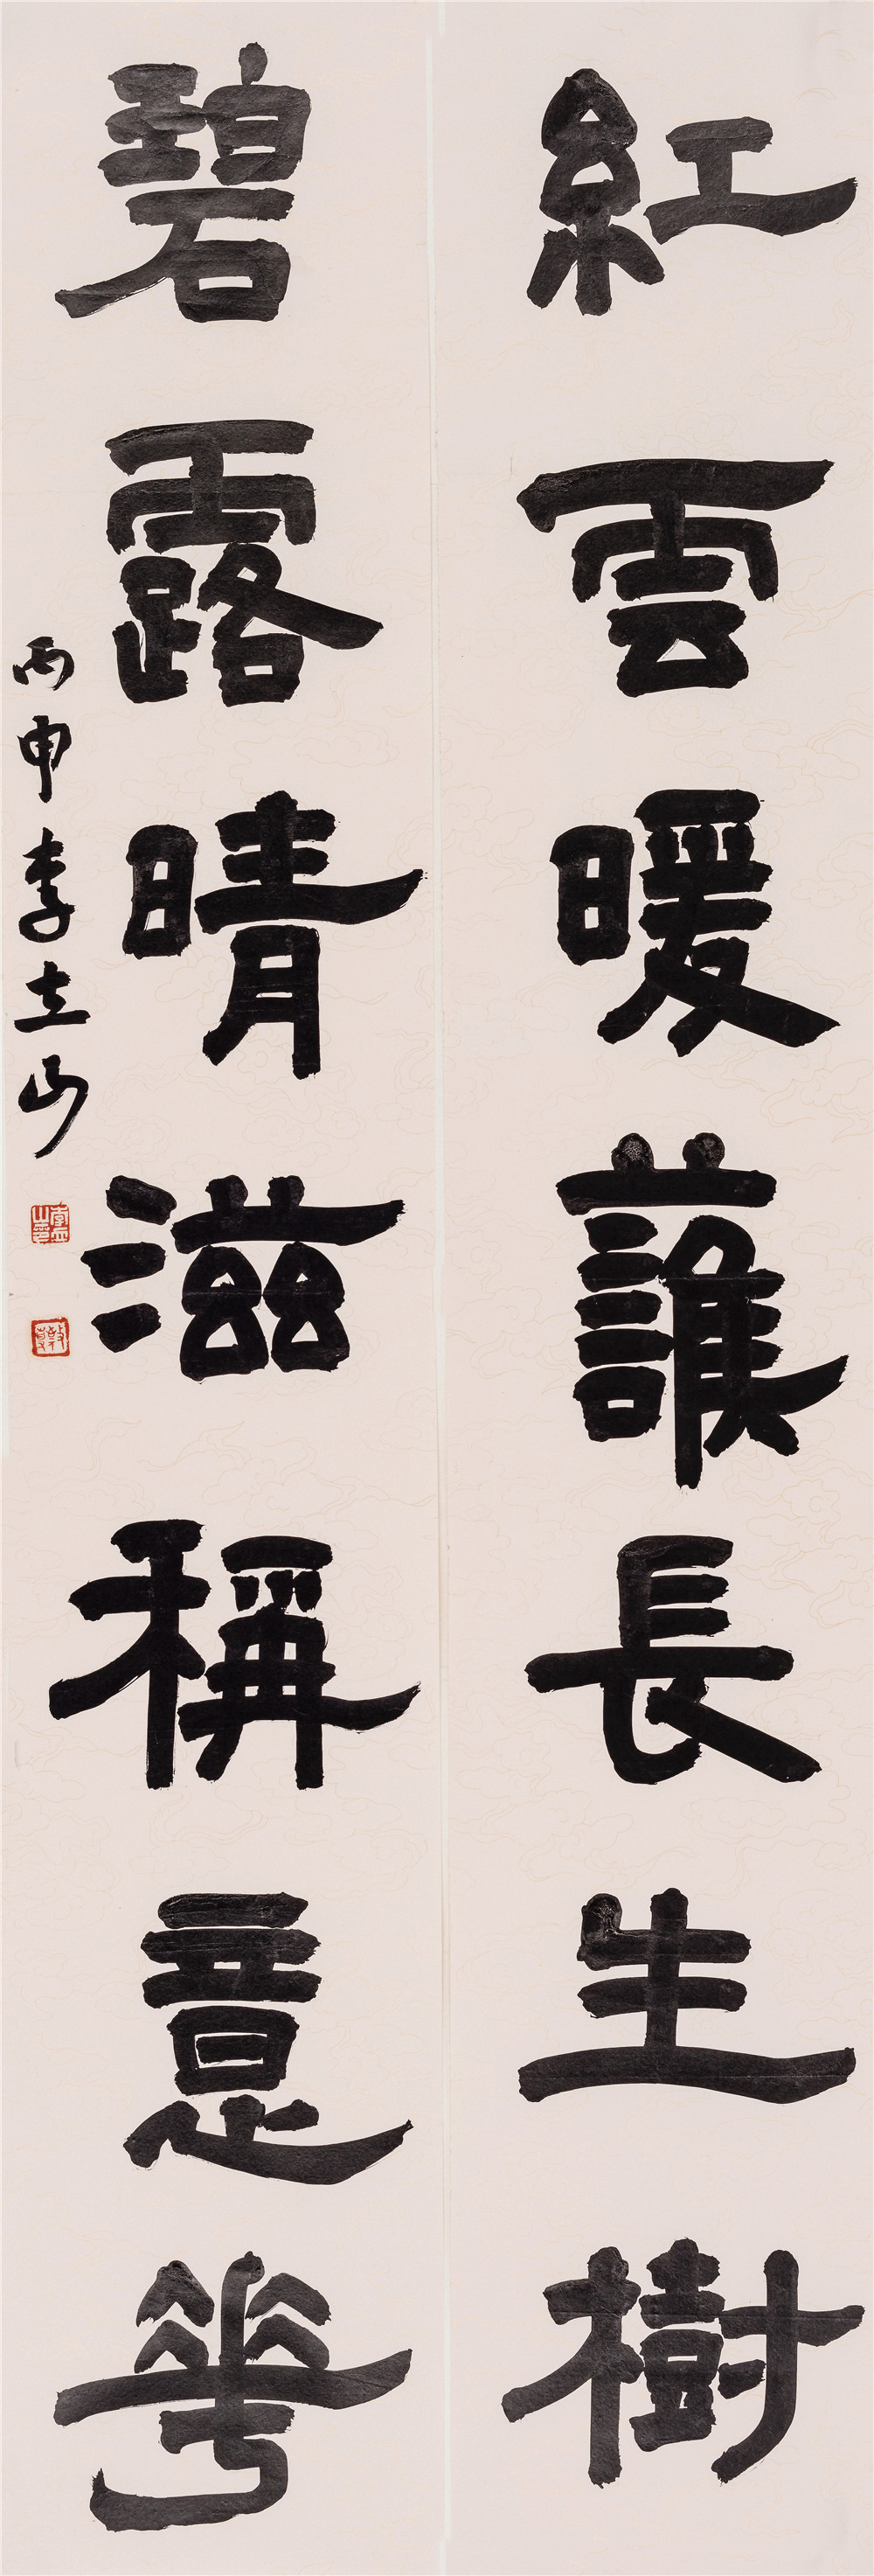 紅雲暖護長生樹
碧露晴滋稱意花
丙申李立山